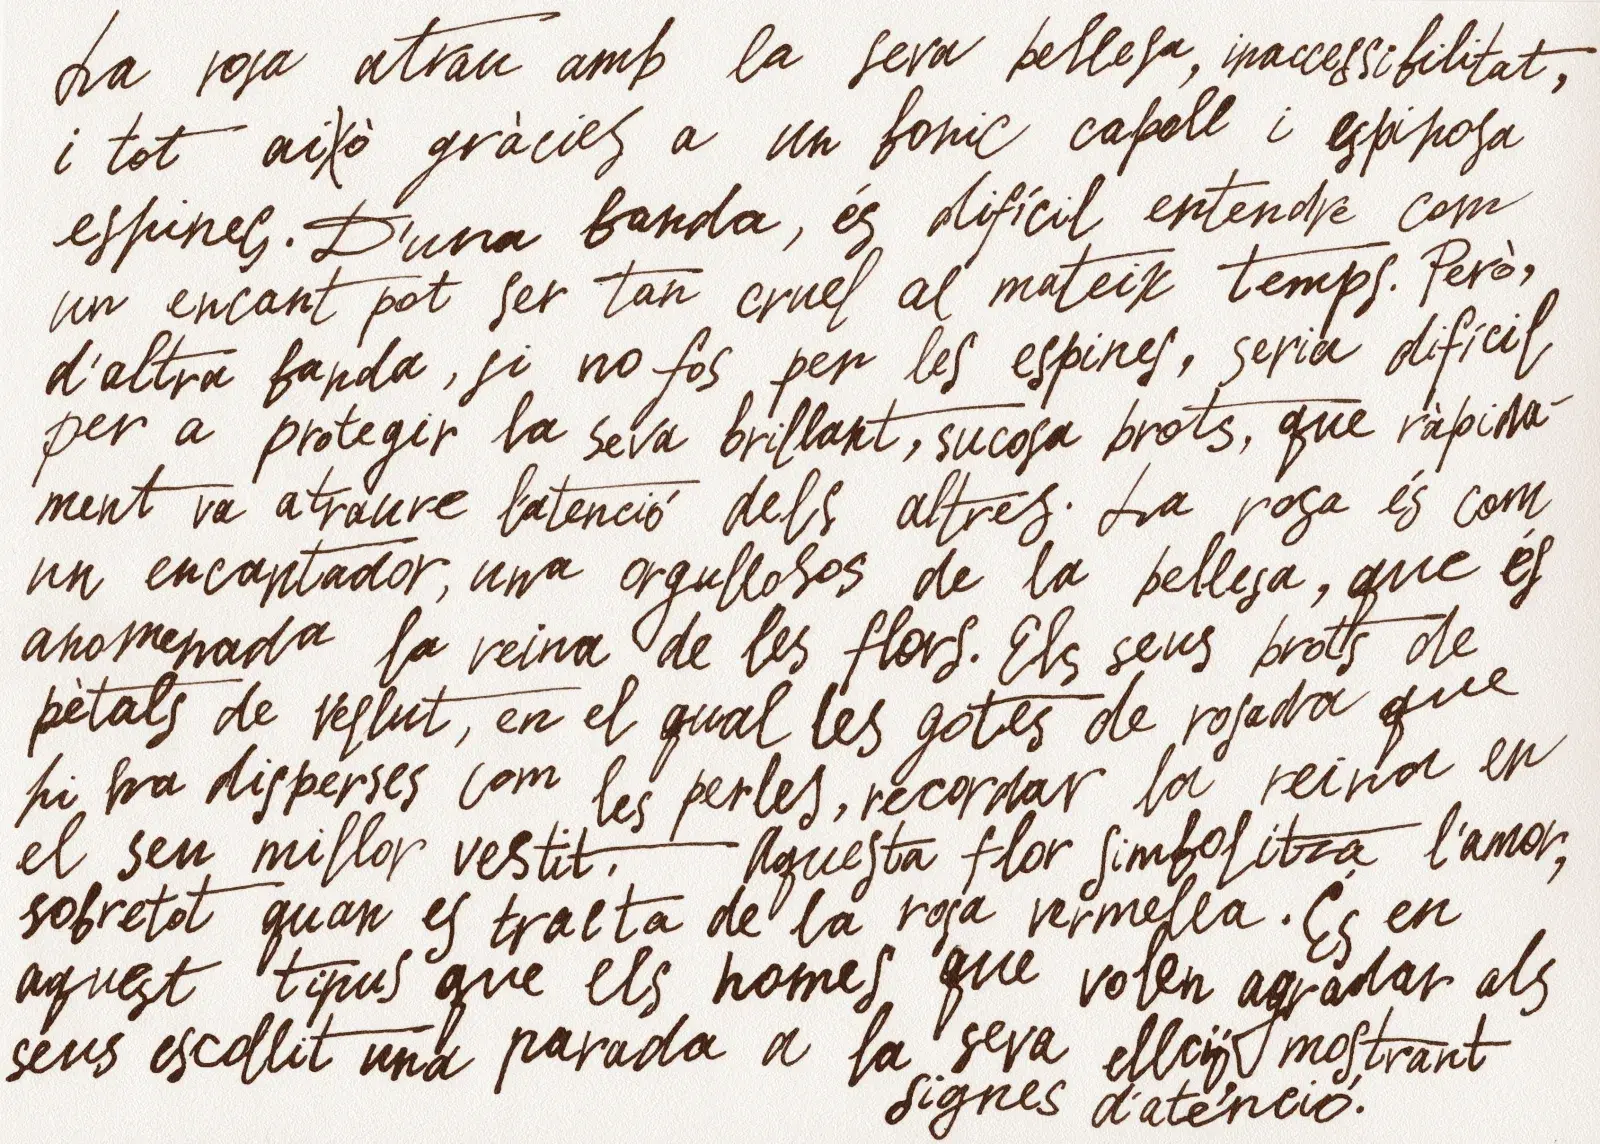 La rosa atrau amb la seva bellesa, inaccessibilitat,
i tot això gràcies a un bonic capoll i espinosa
espines. D'una banda, és difícil entendre com
un encant pot ser tan cruel al mateix temps. Però,
d'altra banda, si no fos per les espines, seria difícil
per a protegir la seva brillant, sucosa brots, que ràpida-
ment va atraure l'atenció dels altres. La rosa és com
un encantador, una orgullosos de la bellesa, que és
anomenada la reina de les flors. Els seus brots de
pètals de vellut, en el qual les gotes de rosada que
hi ha disperses com les perles, recordar la reina en
el seu millor vestit. Aquesta flor simbolitza l'amor,
sobretot quan es tracta de la rosa vermella. És en
aquest tipus que els homes que volen agradar als
seus escollit una parada a la seva mostrant
signes d'atenció.